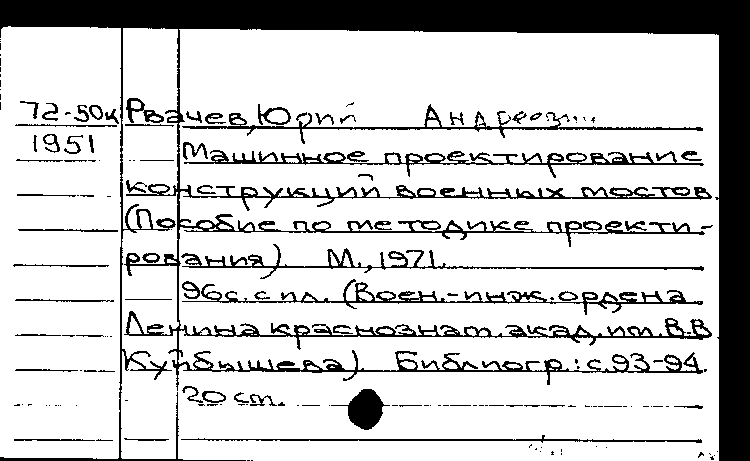 72-50к Рвачев, Юрий Андреевич
1951
Машинное проектирование
конструкций военных мостов.
(Пособие по методике проекти-
рования). М., 1971.
96с. с ил. (Воен.-инж. ордена
Ленина краснознам. акад. им. В.В.
Куйбышева). Библиогр.: с. 93-94.
20 см.